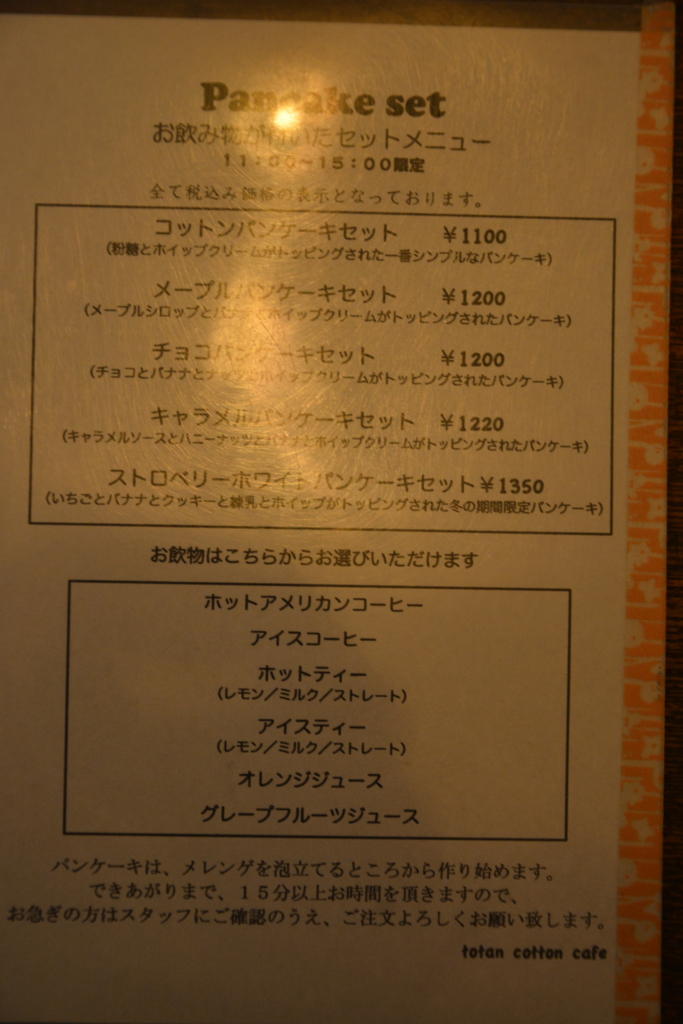 Pancake set
お飲み物が付いたセットメニュー
11:00~15:00限定
全て税込み価格の表示となっております。
コットンパンケーキセット ￥1100
(粉糖とホイップクリームがトッピングされた一番シンプルなパンケーキ)
メープルパンケーキセット ￥1200
(メープルシロップとバナナとホイップクリームがトッピングされたパンケーキ)
チョコパンケーキセット ￥1200
(チョコとバナナとナッツとホイップクリームがトッピングされたパンケーキ)
キャラメルパンケーキセット ￥1220
(キャラメルソースとハニーナッツとバナナとホイップクリームがトッピングされたパンケーキ)
ストロベリーホワイトパンケーキセット￥1350
(いちごとバナナとクッキーと練乳とホイップがトッピングされた冬の期間限定パンケーキ)
お飲物はこちらからお選びいただけます
ホットアメリカンコーヒー
アイスコーヒー
ホットティー
(レモン/ミルク/ストレート)
アイスティー
(レモン/ミルク/ストレート)
オレンジジュース
グレープフルーツジュース
パンケーキは、メレンゲを泡立てるところから作り始めます。
できあがりまで、１５分以上お時間を頂きますので、
お急ぎの方はスタッフにご確認のうえ、ご注文よろしくお願い致します。
totan cotton cafe